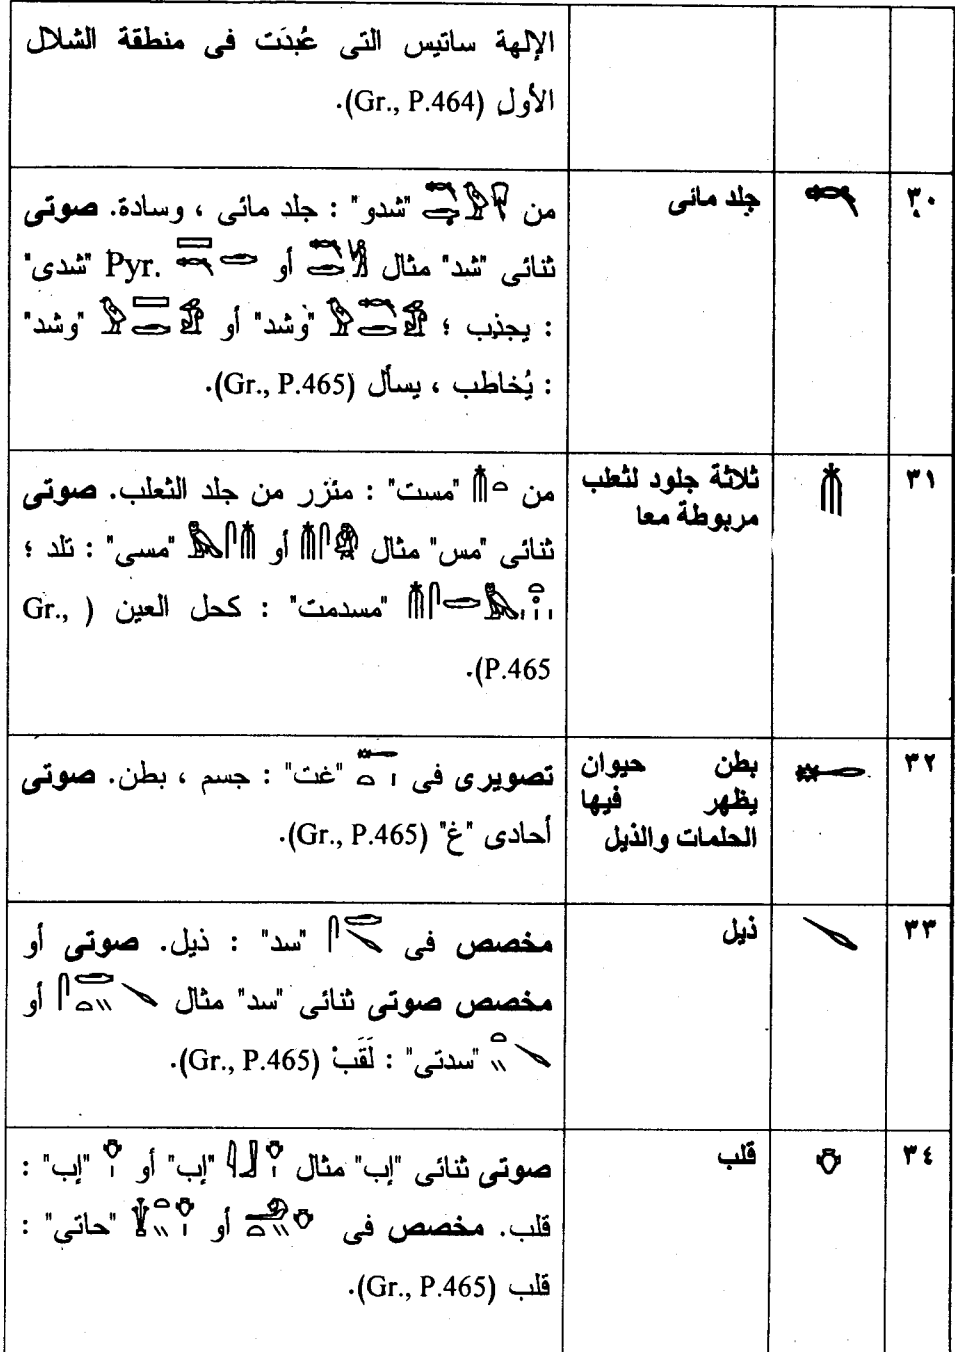 الإلهة ساتيس التى عُبدَت فى منطقة الشلال
الأول (Gr., P.464).
٣٠ جلد مائى من "شدو" : جلد مائى ، وسادة. صوتى
ثنائى "شد" مثال أو Pyr. "شدى"
: يجذب ؛ "وشد" أو "وشد"
: يُخاطب ، يسأل (Gr., P.465).
٣١ ثلاثة جلود لثعلب من "مست" : مئزر من جلد الثعلب. صوتى
مربوطة معا ثنائى "مس" مثال أو "مسى" : تلد ؛
"مسدمت" : كحل العين ( Gr.,
P.465).
٣٢ بطن حيوان تصويرى فى "غت" : جسم ، بطن. صوتى
يظهر فيها أحادى "غ" (Gr., P.465).
الحلمات والذيل
٣٣ ذيل مخصص فى "سد" : ذيل. صوتى أو
مخصص صوتى ثنائى "سد" مثال أو
"سدتى" : لَقَبْ (Gr., P.465).
٣٤ قلب صوتى ثنائى "إب" مثال "إب" أو "إب" :
قلب. مخصص فى أو "حاتى" :
قلب (Gr., P.465).